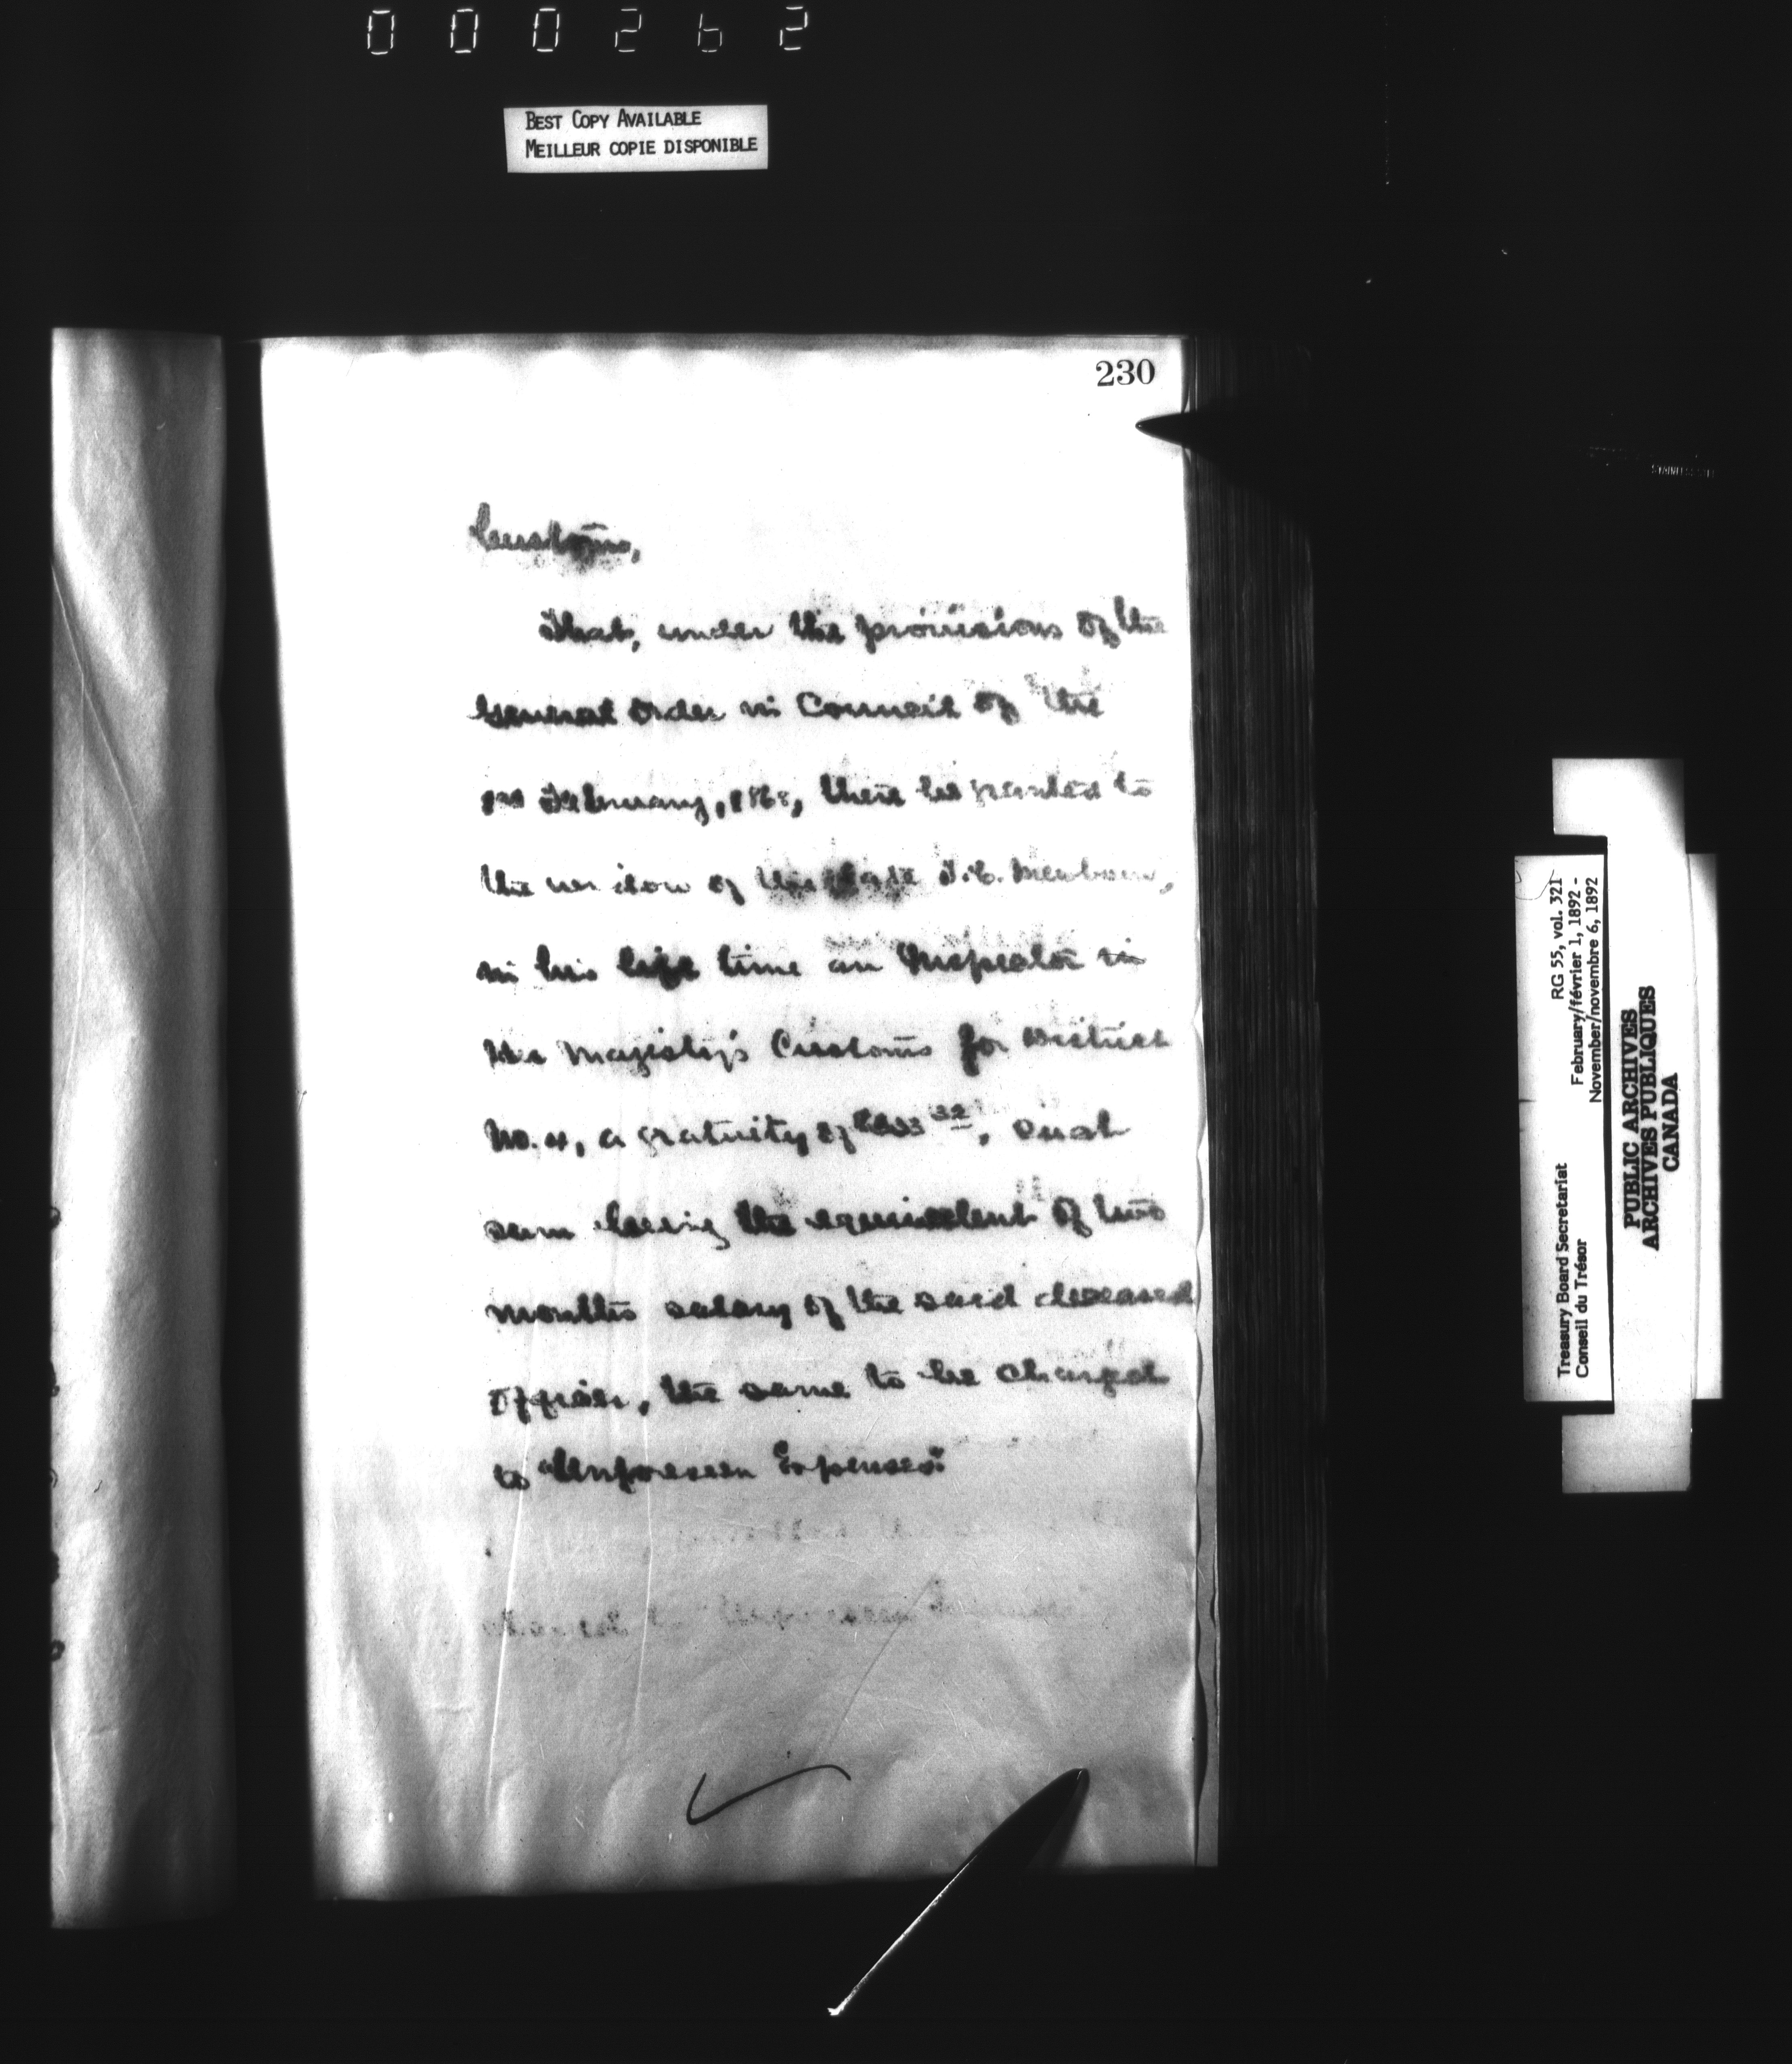 000262
BEST COPY AVAILABLE
MEILLEUR COPIE DISPONIBLE
230
Customs,
That, under the provisions of the
General Order in Council of the
February, there be granted to
the widow of the late
in his life time an Inspector in
Her Majesty's Customs for District
No. 4, a gratuity of such
sum being the equivalent of two
months salary of the said deceased
officer, the same to be charged
to "Unforeseen Expenses."
Treasury Board Secretariat RG 55, vol. 321
Conseil du Trésor February/février 1, 1892 -
November/novembre 6, 1892
PUBLIC ARCHIVES
ARCHIVES PUBLIQUES
CANADA